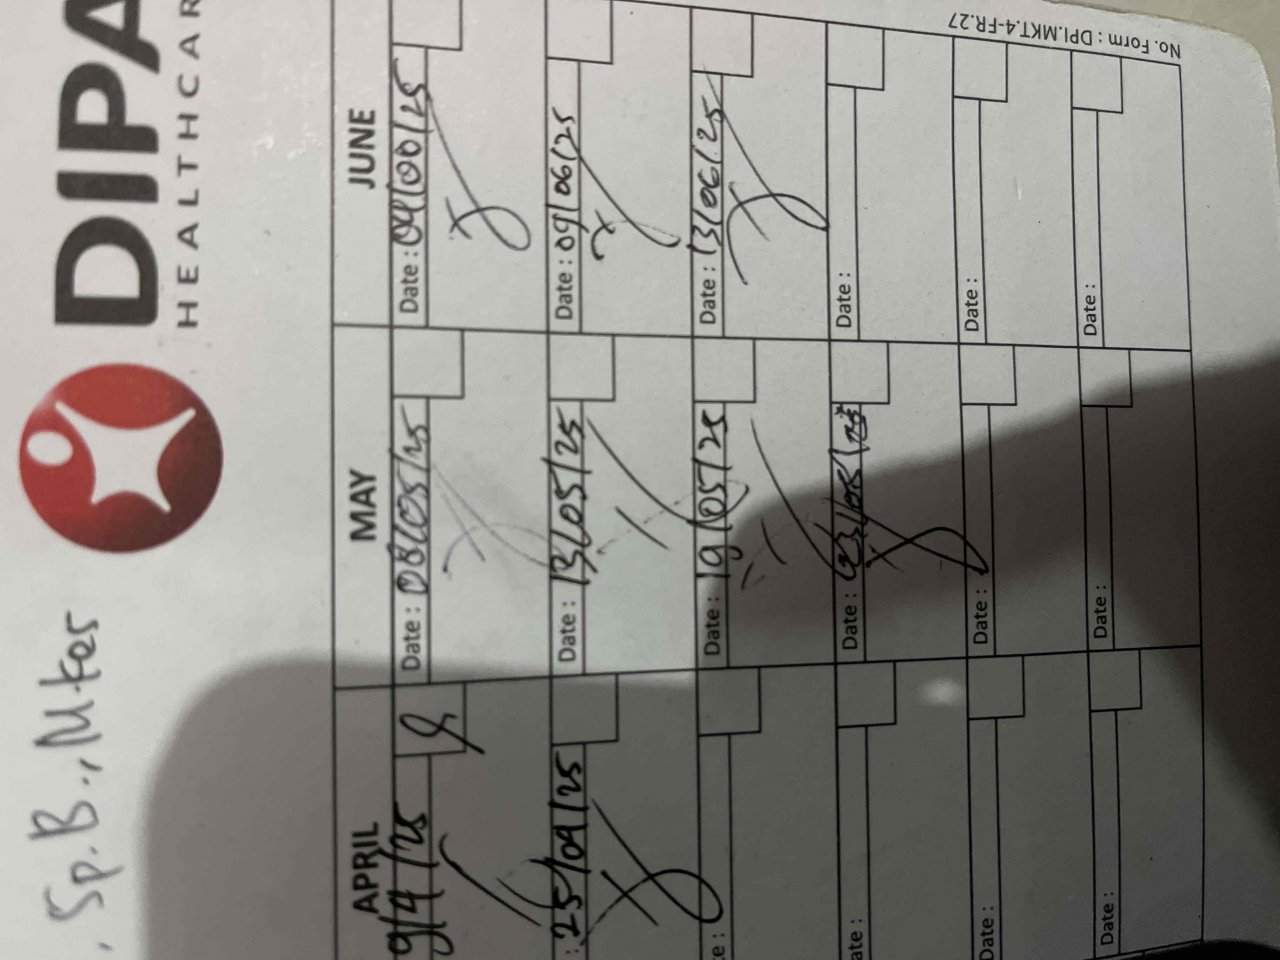 , Sp.B., Mkes
DIPA
HEALTHCAR
APRIL MAY JUNE
9/4/25 Date : 08/05/25 Date : 04/06/25
: 25/04/25 Date : 13/05/25 Date : 09/06/25
te : Date : 19/05/25 Date : 13/06/25
ate : Date : Date :
Date : Date : Date :
Date : Date : Date :
No. Form : DPI.MKT.4-FR.27